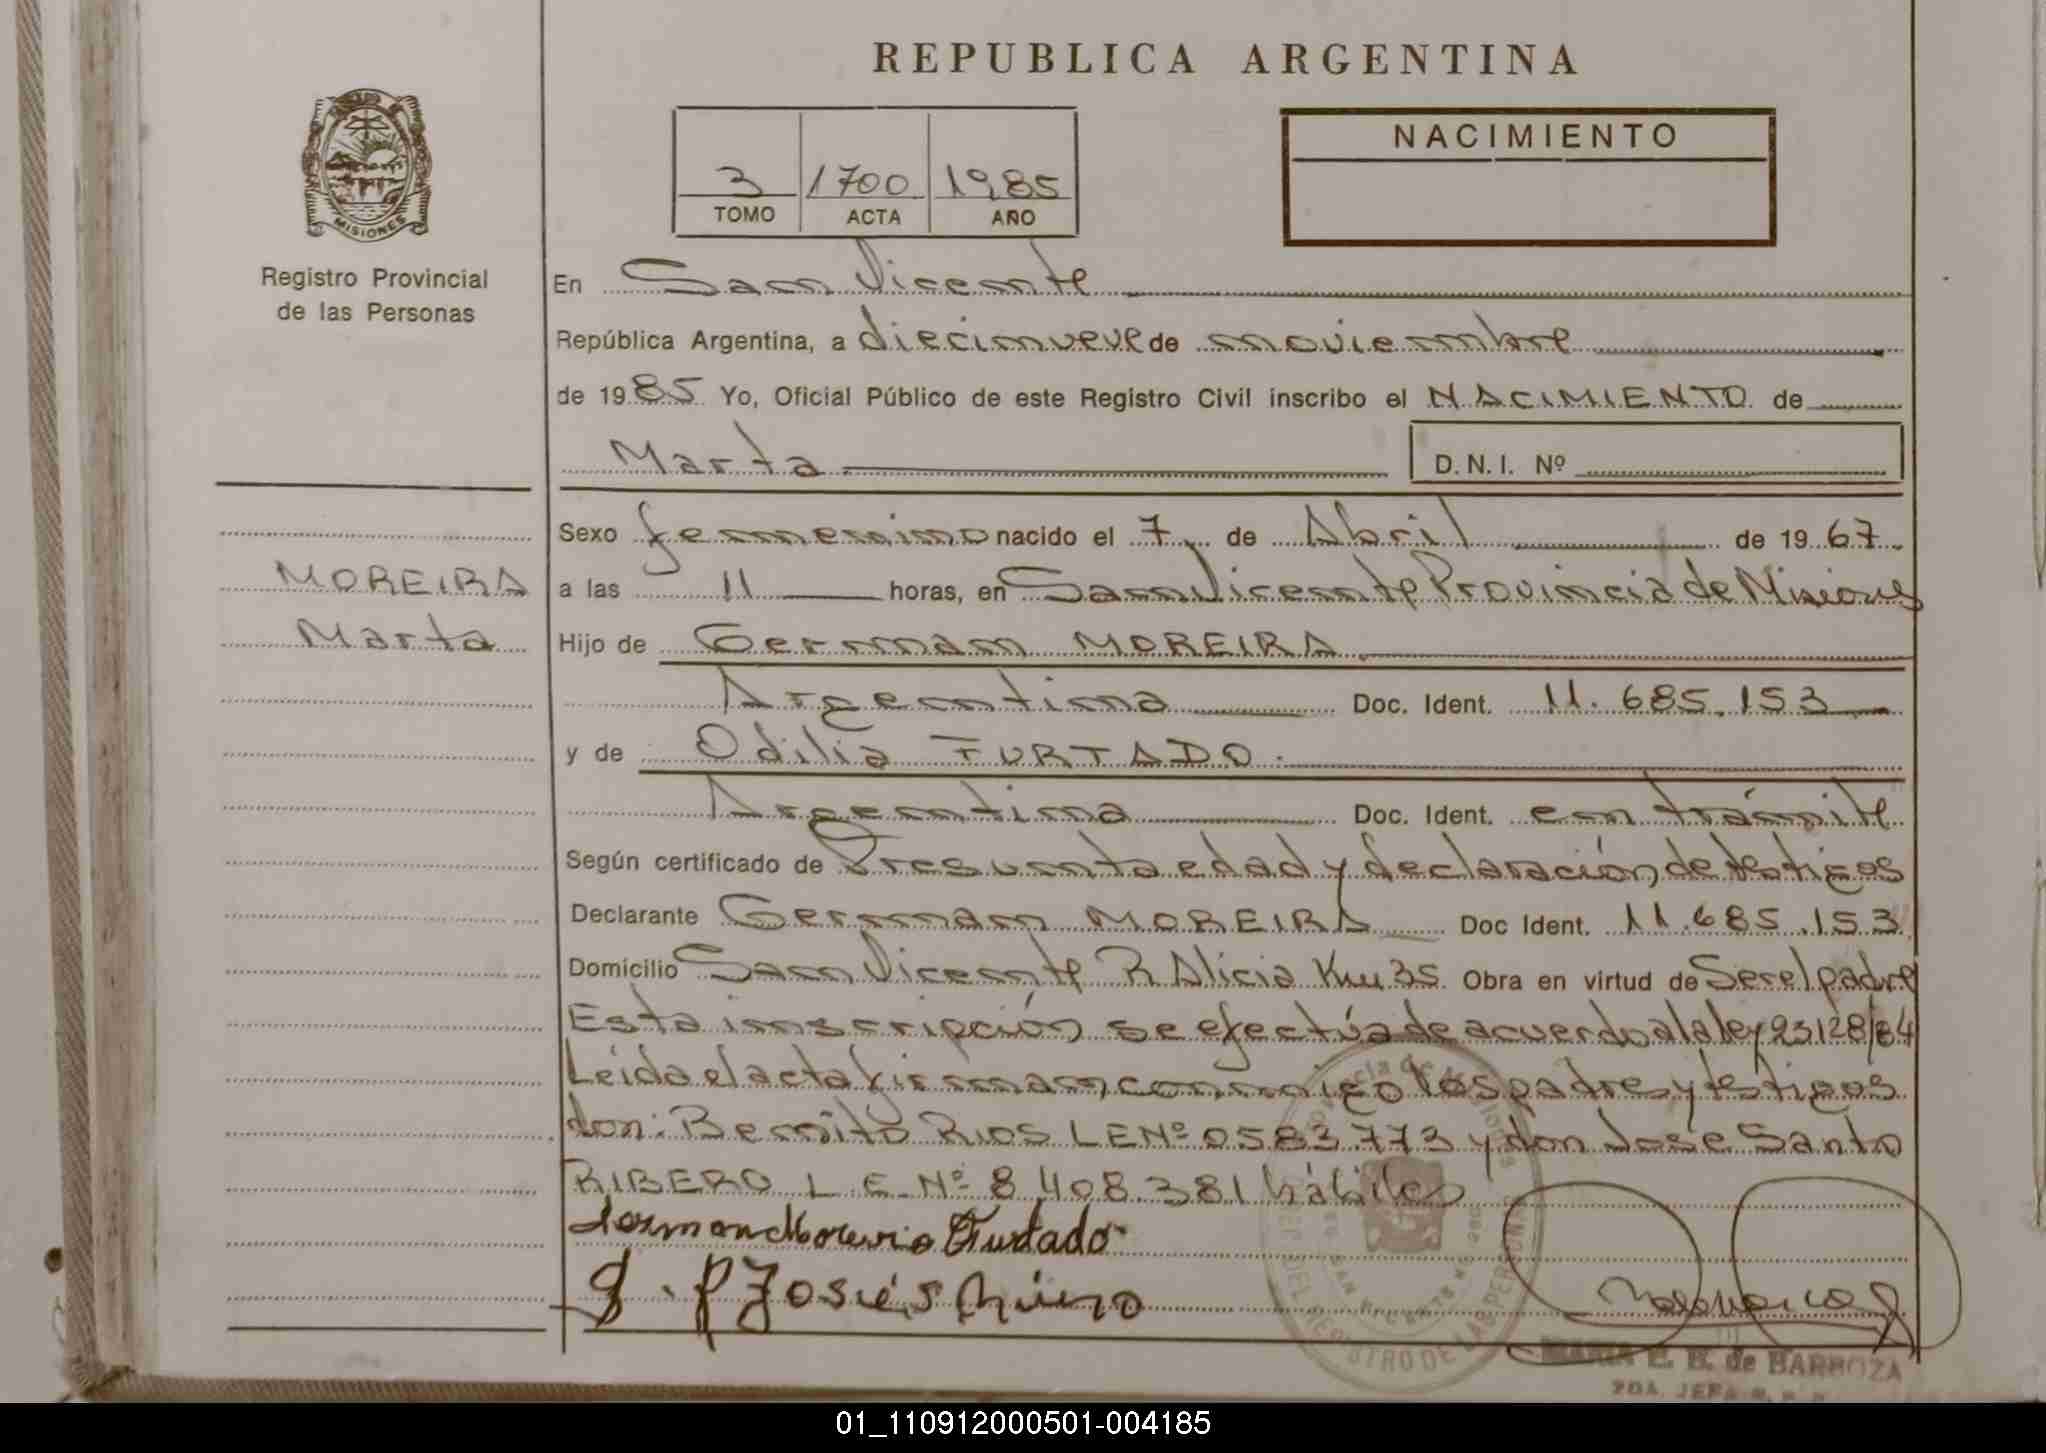 REPUBLICA ARGENTINA
NACIMIENTO
3 1700 1985
TOMO ACTA AÑO
MISIONES
Registro Provincial
de las Personas
En San Vicente
República Argentina, a diecinueve de noviembre
de 1985 Yo, Oficial Público de este Registro Civil inscribo el NACIMIENTO de
Marta D.N.I. Nº
Sexo femenino nacido el 7 de Abril de 1967
MOREIRA
Marta
a las 11 horas, en San Vicente Provincia de Misiones
Hijo de German MOREIRA
Argentina Doc. Ident. 11.685.153
y de Odilia FURTADO.
Argentina Doc. Ident. en trámite
Según certificado de Presunta edad y declaración de testigos
Declarante German MOREIRA Doc Ident. 11.685.153
Domicilio San Vicente R Alicia Km 35 Obra en virtud de Ser el padre
Esta inscripción se efectúa de acuerdo a la ley 23128/84
Leída el acta firman conmigo los padres y testigos
don: Benito RIOS LE Nº 0583.773 y don José Santo
RIBERO L.E. Nº 8.408.381 hábiles
Furtado
MARIA E. B. de BARBOZA
2DA. JEFA
01_110912000501-004185